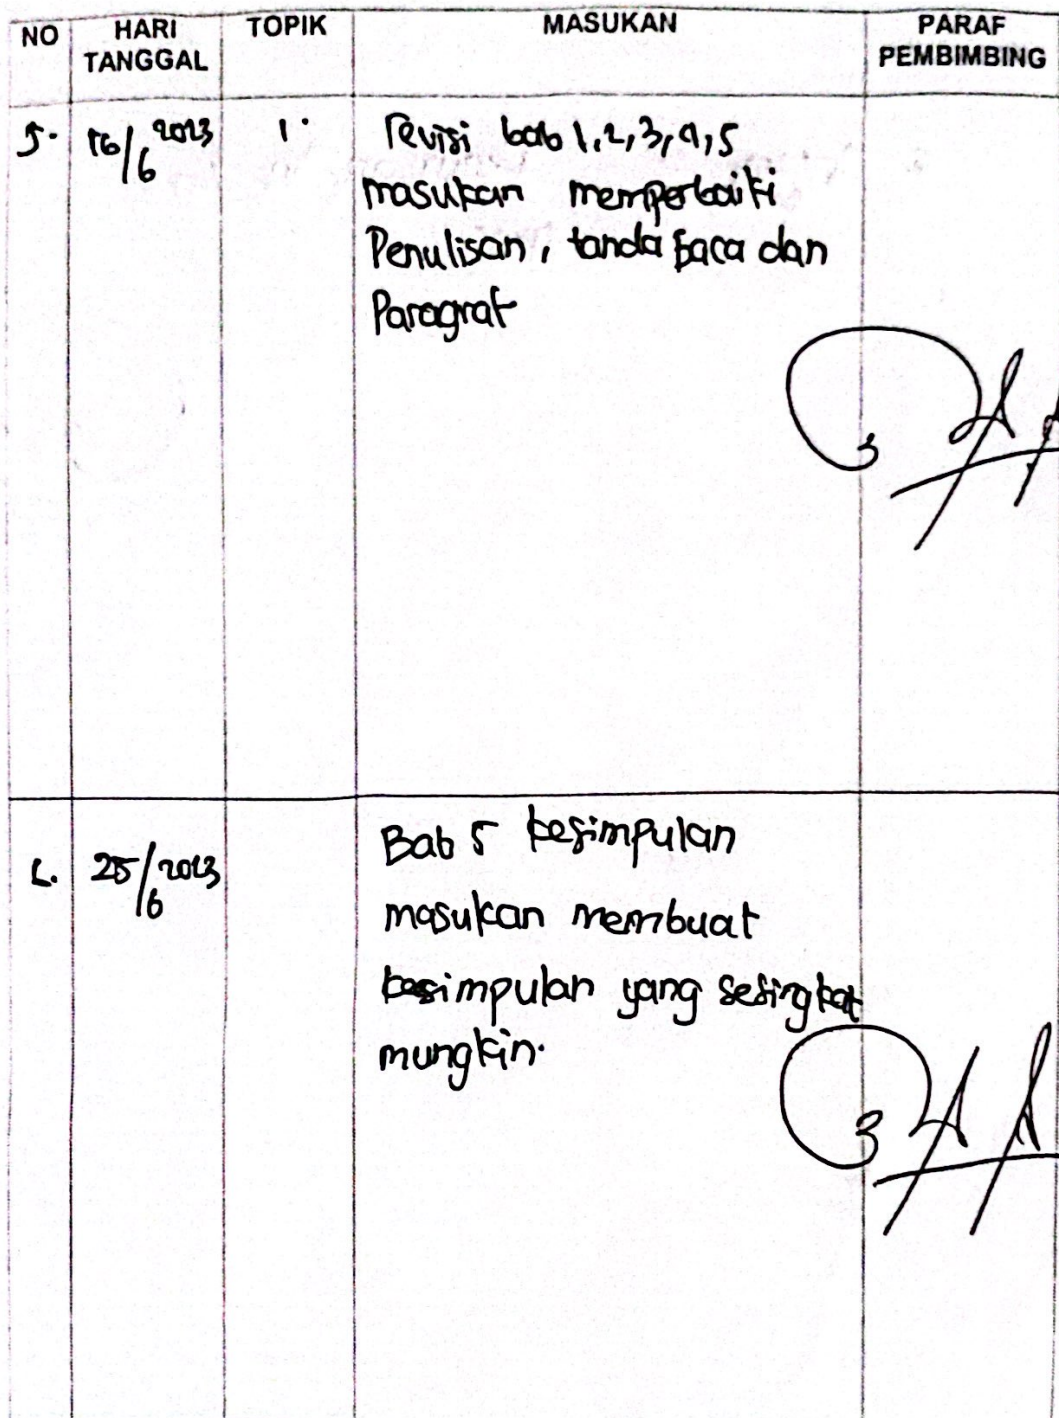 NO HARI TANGGAL TOPIK MASUKAN PARAF PEMBIMBING
5. 16/6 2023 1. revisi bab 1,2,3,4,5
masukan memperbaiki
Penulisan, tanda baca dan
Paragraf
6. 25/6 2023 Bab 5 kesimpulan
masukan membuat
kesimpulan yang sesingkat
mungkin.